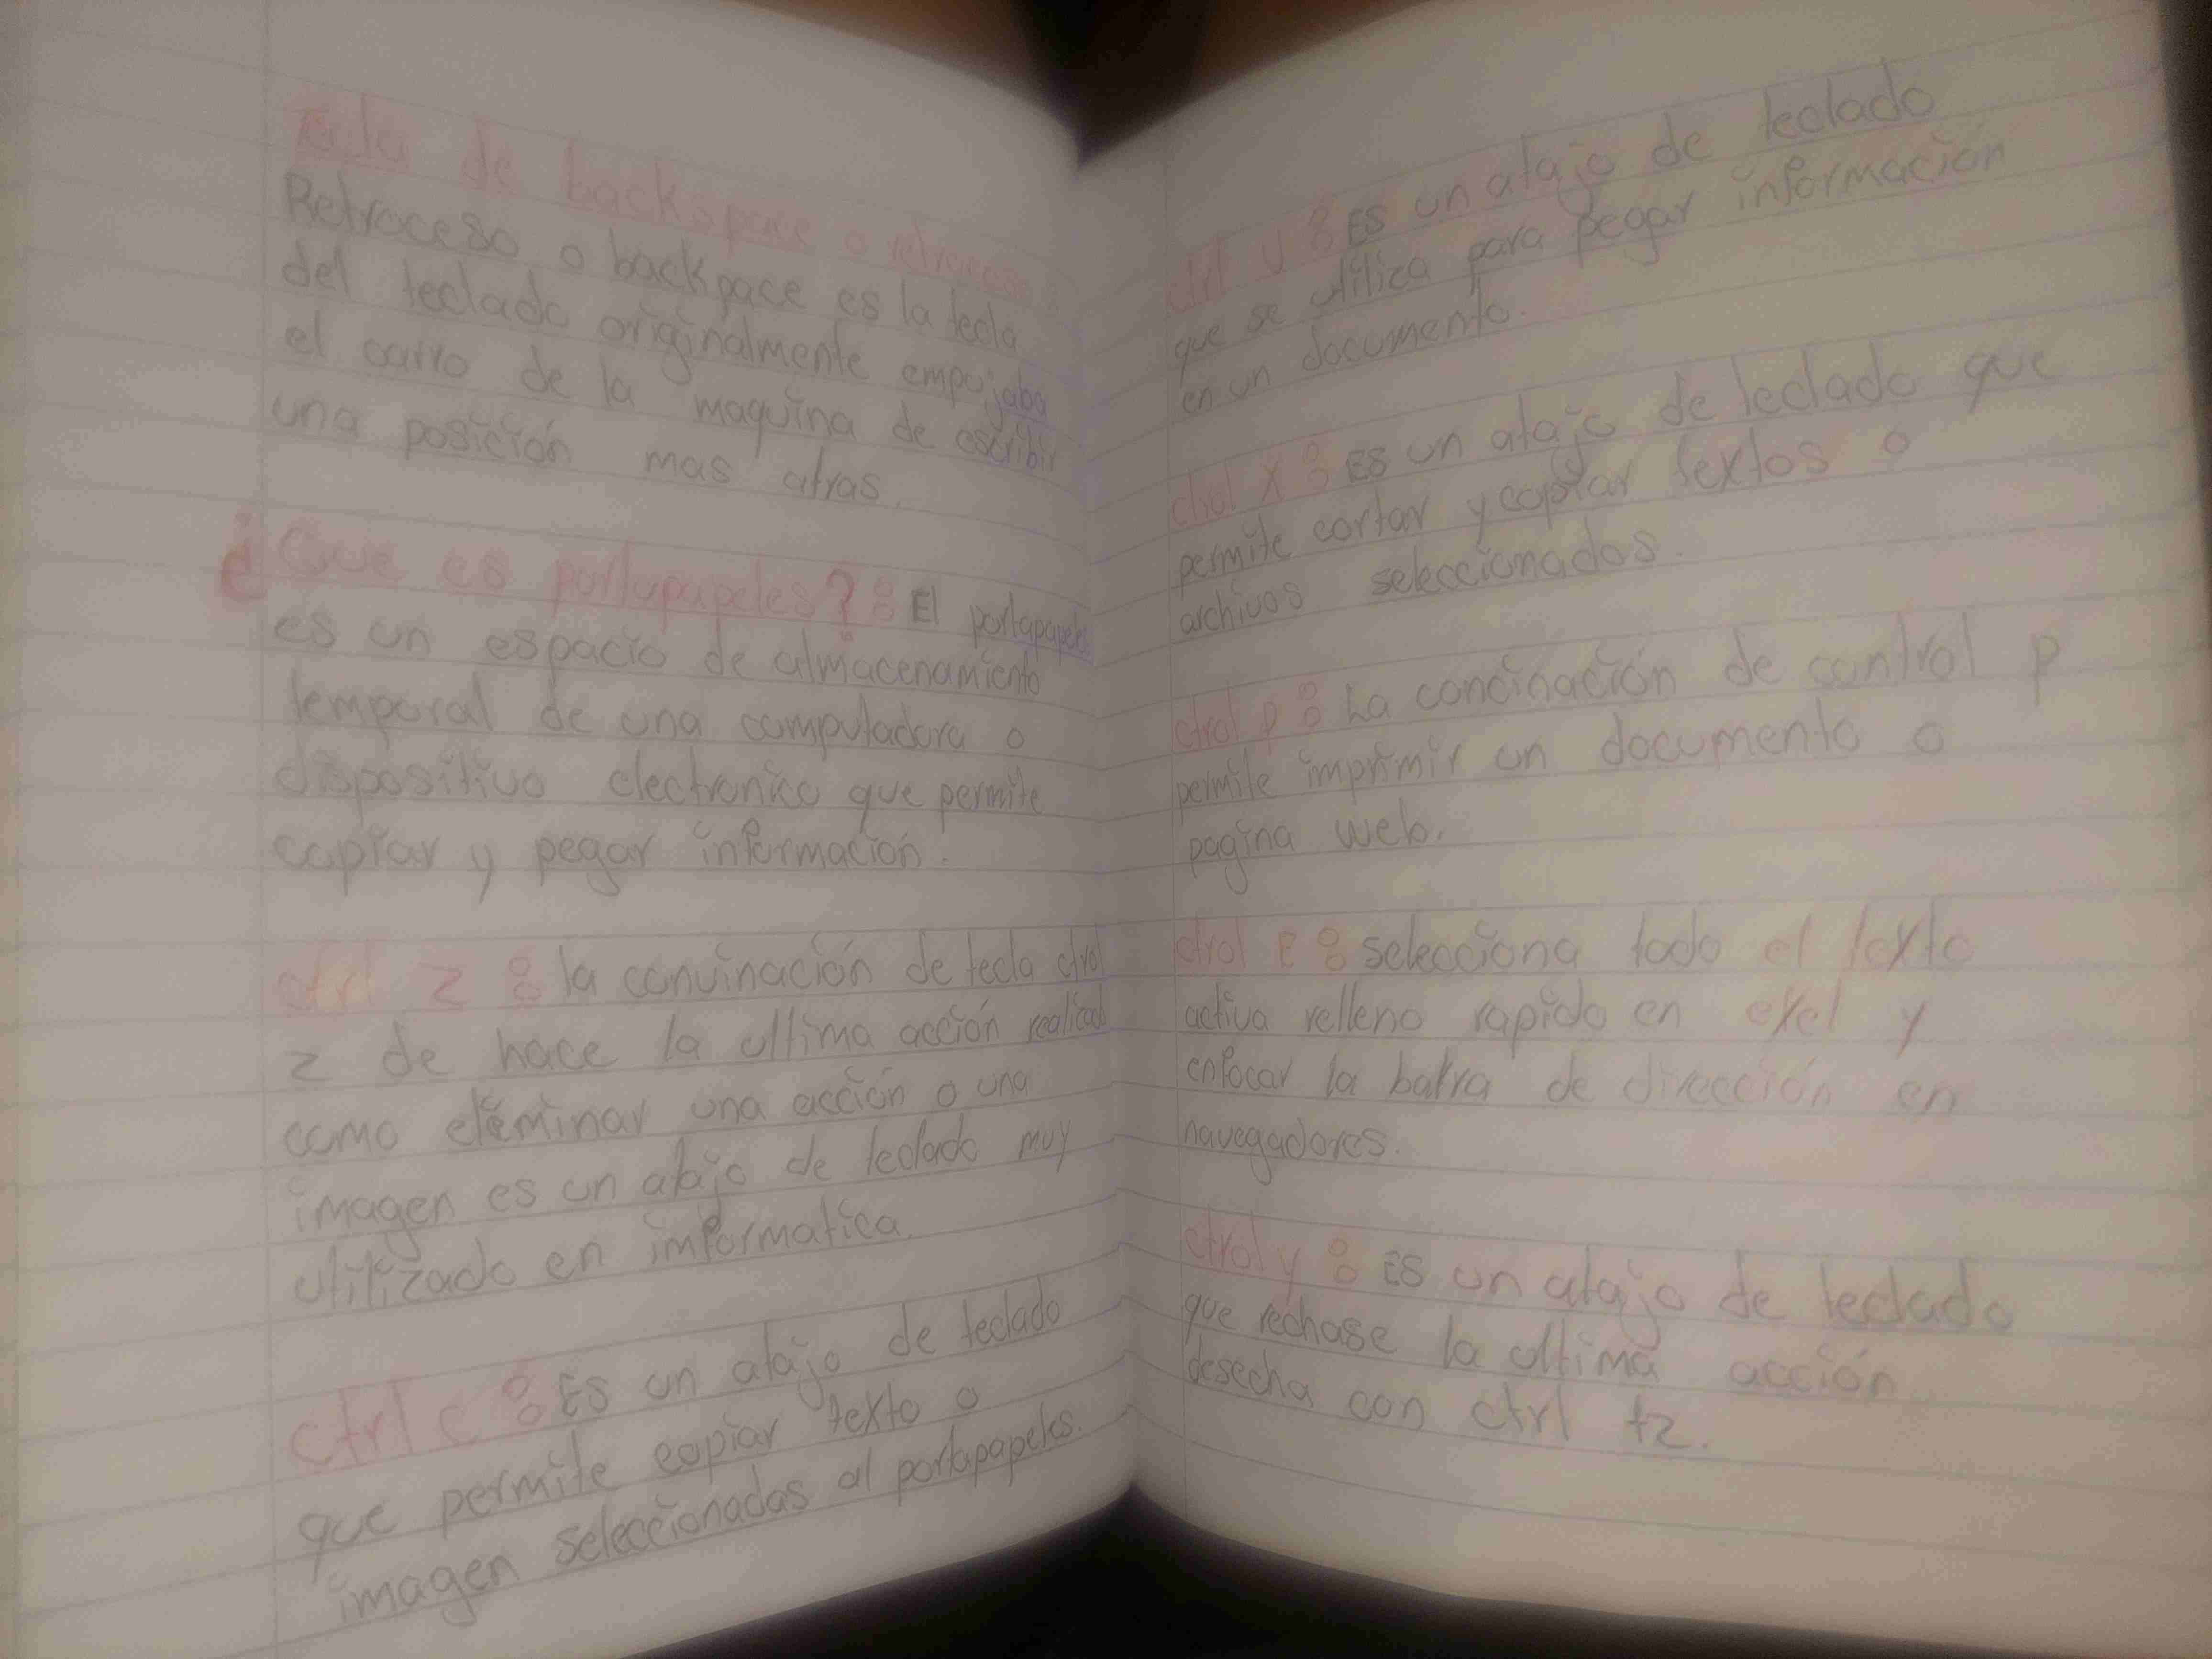 tecla de backspace o retroceso:
Retroceso o backpace es la tecla
del teclado originalmente empujaba
el carro de la maquina de escribir
una posición mas atras.
¿Que es portapapeles?: El portapapeles
es un espacio de almacenamiento
temporal de una computadora o
dispositivo electronico que permite
copiar y pegar información.
ctrl z: la convinación de tecla ctrol
z de hace la ultima acción realizad
como eleminar una acción o una
imagen es un atajo de teclado muy
utilizado en imformatica.
ctrl c: Es un atajo de teclado
que permite copiar texto o
imagen seleccionadas al portapapeles.
ctrl v: Es un atajo de teclado
que se utiliza para pegar información
en un documento.
ctrol x: Es un atajo de teclado que
permite cortar y copiar textos o
archivos seleccionados.
ctrol p: La concinación de control p
permite imprimir un documento o
pagina web.
ctrol e: selecciona todo el texto
activa relleno rapido en exel y
enfocar la barra de dirección en
navegadores.
ctrol y: Es un atajo de teclado
que rechase la ultima acción
desecha con ctrl +z.